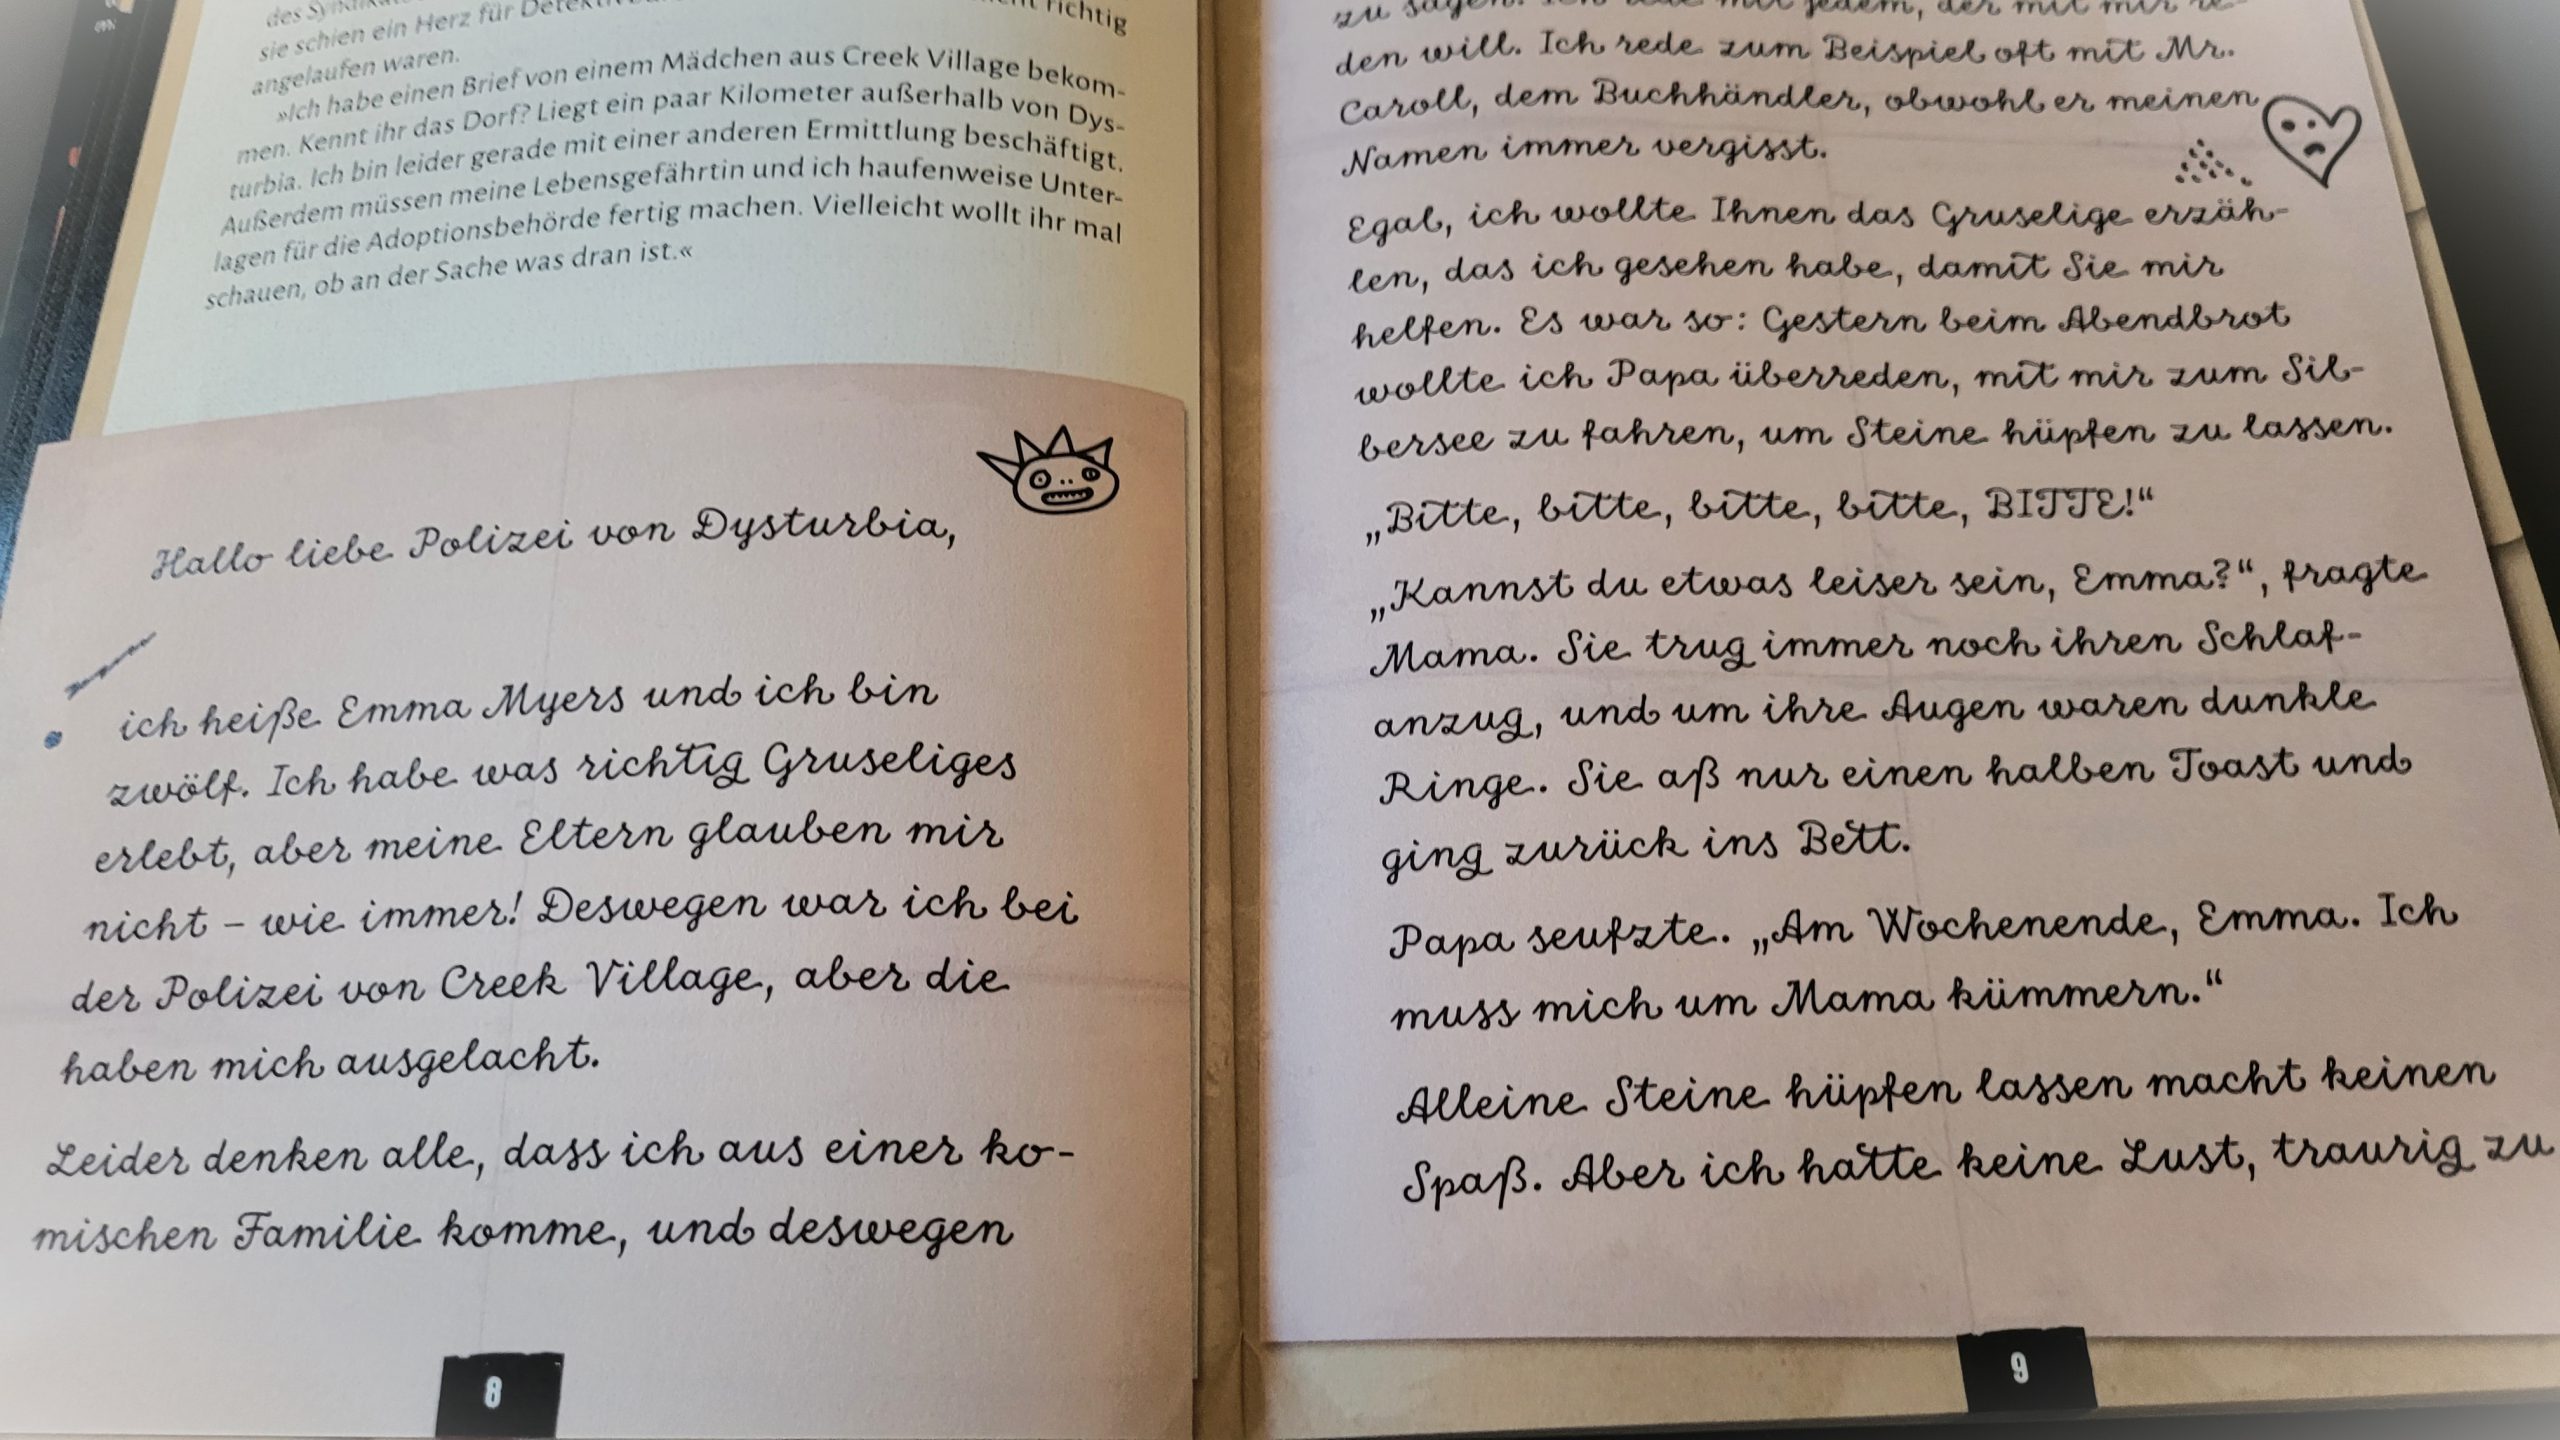 des Syndikats
richtig
sie schien ein Herz für
angelaufen waren.
»Ich habe einen Brief von einem Mädchen aus Creek Village bekom-
men. Kennt ihr das Dorf? Liegt ein paar Kilometer außerhalb von Dys-
turbia. Ich bin leider gerade mit einer anderen Ermittlung beschäftigt.
Außerdem müssen meine Lebensgefährtin und ich haufenweise Unter-
lagen für die Adoptionsbehörde fertig machen. Vielleicht wollt ihr mal
schauen, ob an der Sache was dran ist.«
Hallo liebe Polizei von Dysturbia,
ich heiße Emma Myers und ich bin
zwölf. Ich habe was richtig Gruseliges
erlebt, aber meine Eltern glauben mir
nicht – wie immer! Deswegen war ich bei
der Polizei von Creek Village, aber die
haben mich ausgelacht.
Leider denken alle, dass ich aus einer ko-
mischen Familie komme, und deswegen
8
zu sagen. Ich rede mit jedem, der mit mir re-
den will. Ich rede zum Beispiel oft mit Mr.
Caroll, dem Buchhändler, obwohl er meinen
Namen immer vergisst.
Egal, ich wollte Ihnen das Gruselige erzäh-
len, das ich gesehen habe, damit Sie mir
helfen. Es war so: Gestern beim Abendbrot
wollte ich Papa überreden, mit mir zum Sil-
bersee zu fahren, um Steine hüpfen zu lassen.
„Bitte, bitte, bitte, bitte, BITTE!“
„Kannst du etwas leiser sein, Emma?“, fragte
Mama. Sie trug immer noch ihren Schlaf-
anzug, und um ihre Augen waren dunkle
Ringe. Sie aß nur einen halben Toast und
ging zurück ins Bett.
Papa seufzte. „Am Wochenende, Emma. Ich
muss mich um Mama kümmern.“
Alleine Steine hüpfen lassen macht keinen
Spaß. Aber ich hatte keine Lust, traurig zu
9